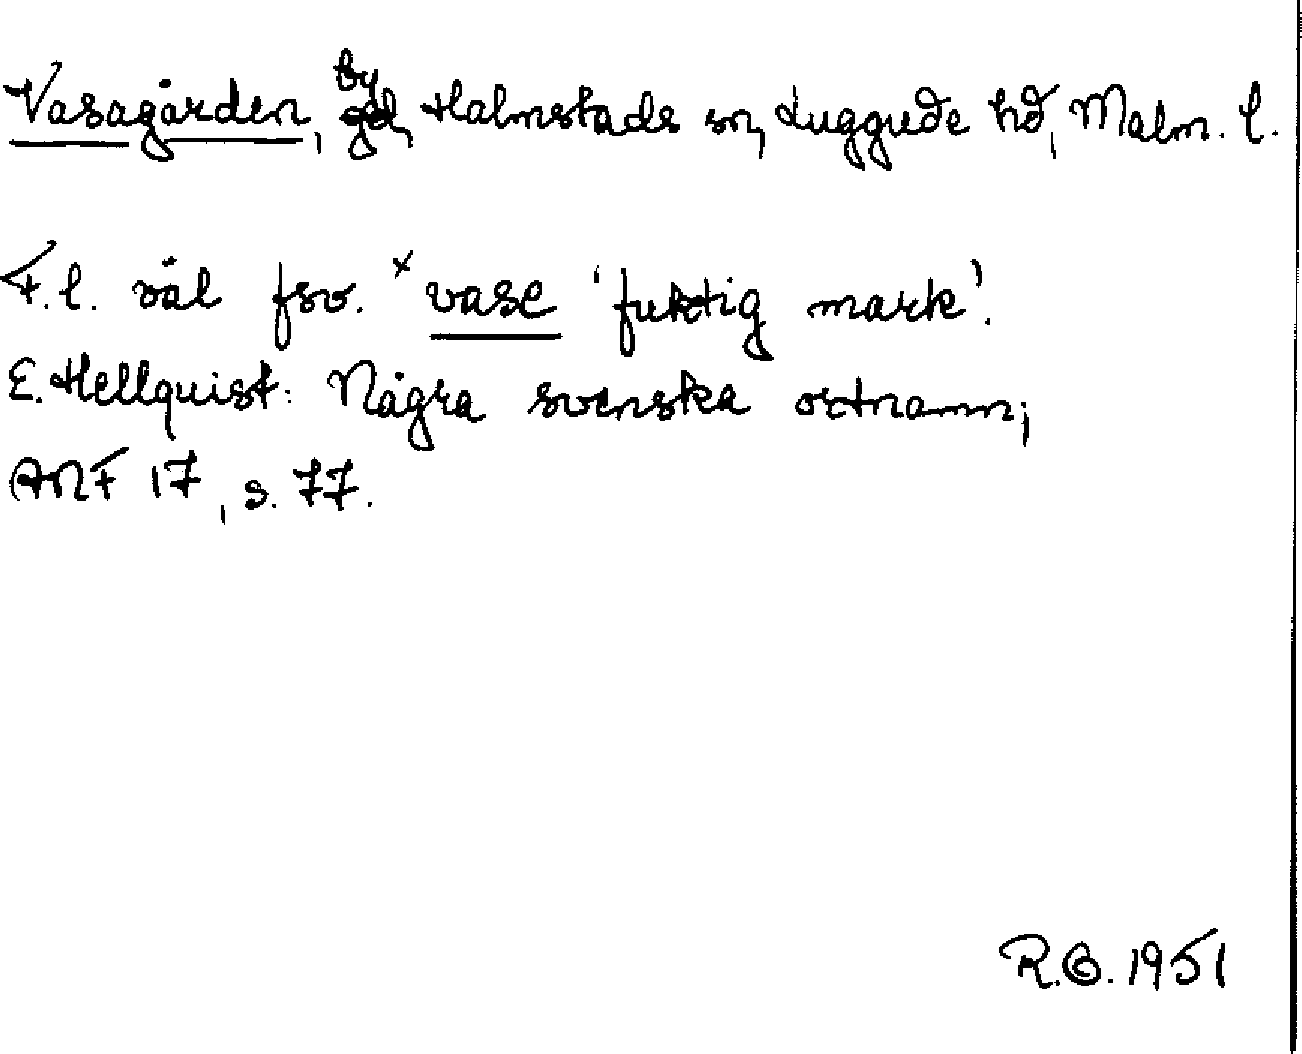 Vasagården, by gd, Halmstads sn, Luggude hd, Malm. l.
F.l. väl fsv. ˣvase 'fuktig mark'.
E. Hellquist: Några svenska ortnamn;
ANF 17, s. 77.
R.G. 1951